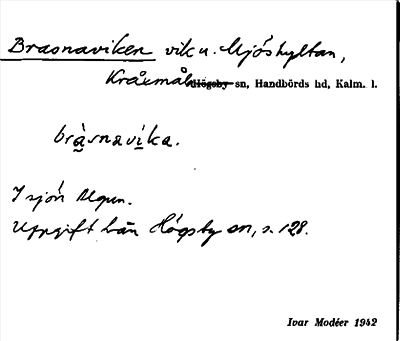 Brasnaviken vik u. Mjöshyltan,
Kråksmåla Högsby sn, Handbörds hd, Kalm. l.
bràsnavíka.
I sjön Alqun.
Uppgift från Högsby sn, s. 128.
Ivar Modéer 1942